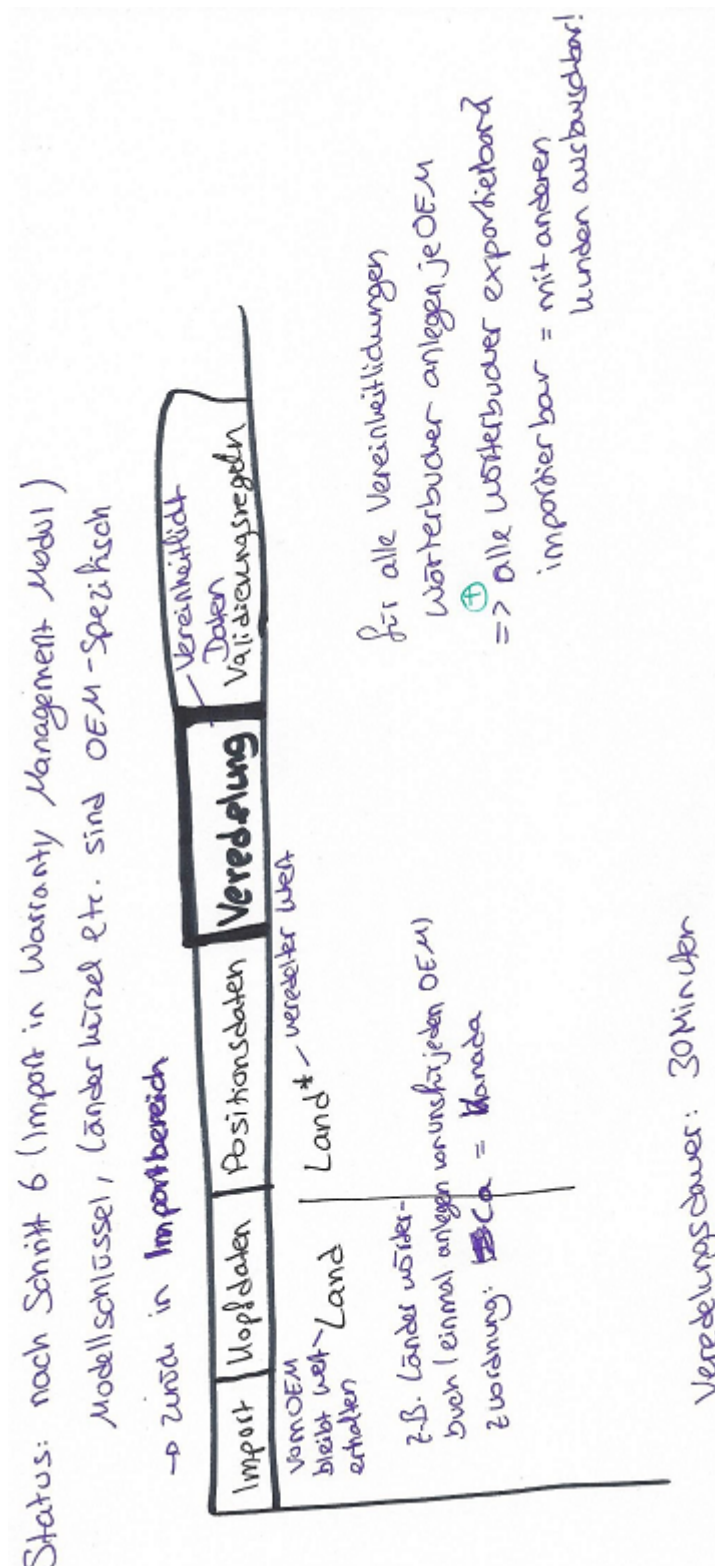 Status: nach Schritt 6 (Import in Warranty Management Modul)
Modellschlüssel, Länderkürzel etc. sind OEM-Spezifisch
→ zurück in Importbereich
Import | Kopfdaten | Positionsdaten | Veredelung
Vereinheitlicht
Daten
Validierungsregeln
Vom OEM
bleibt Wert
erhalten
Land
Land* – veredelter Wert
z.B. Länder wörter-
buch (einmal anlegen von uns für jeden OEM)
Zuordnung: Ca = Kanada
für alle Vereinheitlichungen
Wörterbücher anlegen je OEM
+
=> alle Wörterbücher exportierbar
importierbar = mit anderen
Kunden austauschbar!
Veredelungsdauer: 30 Minuten